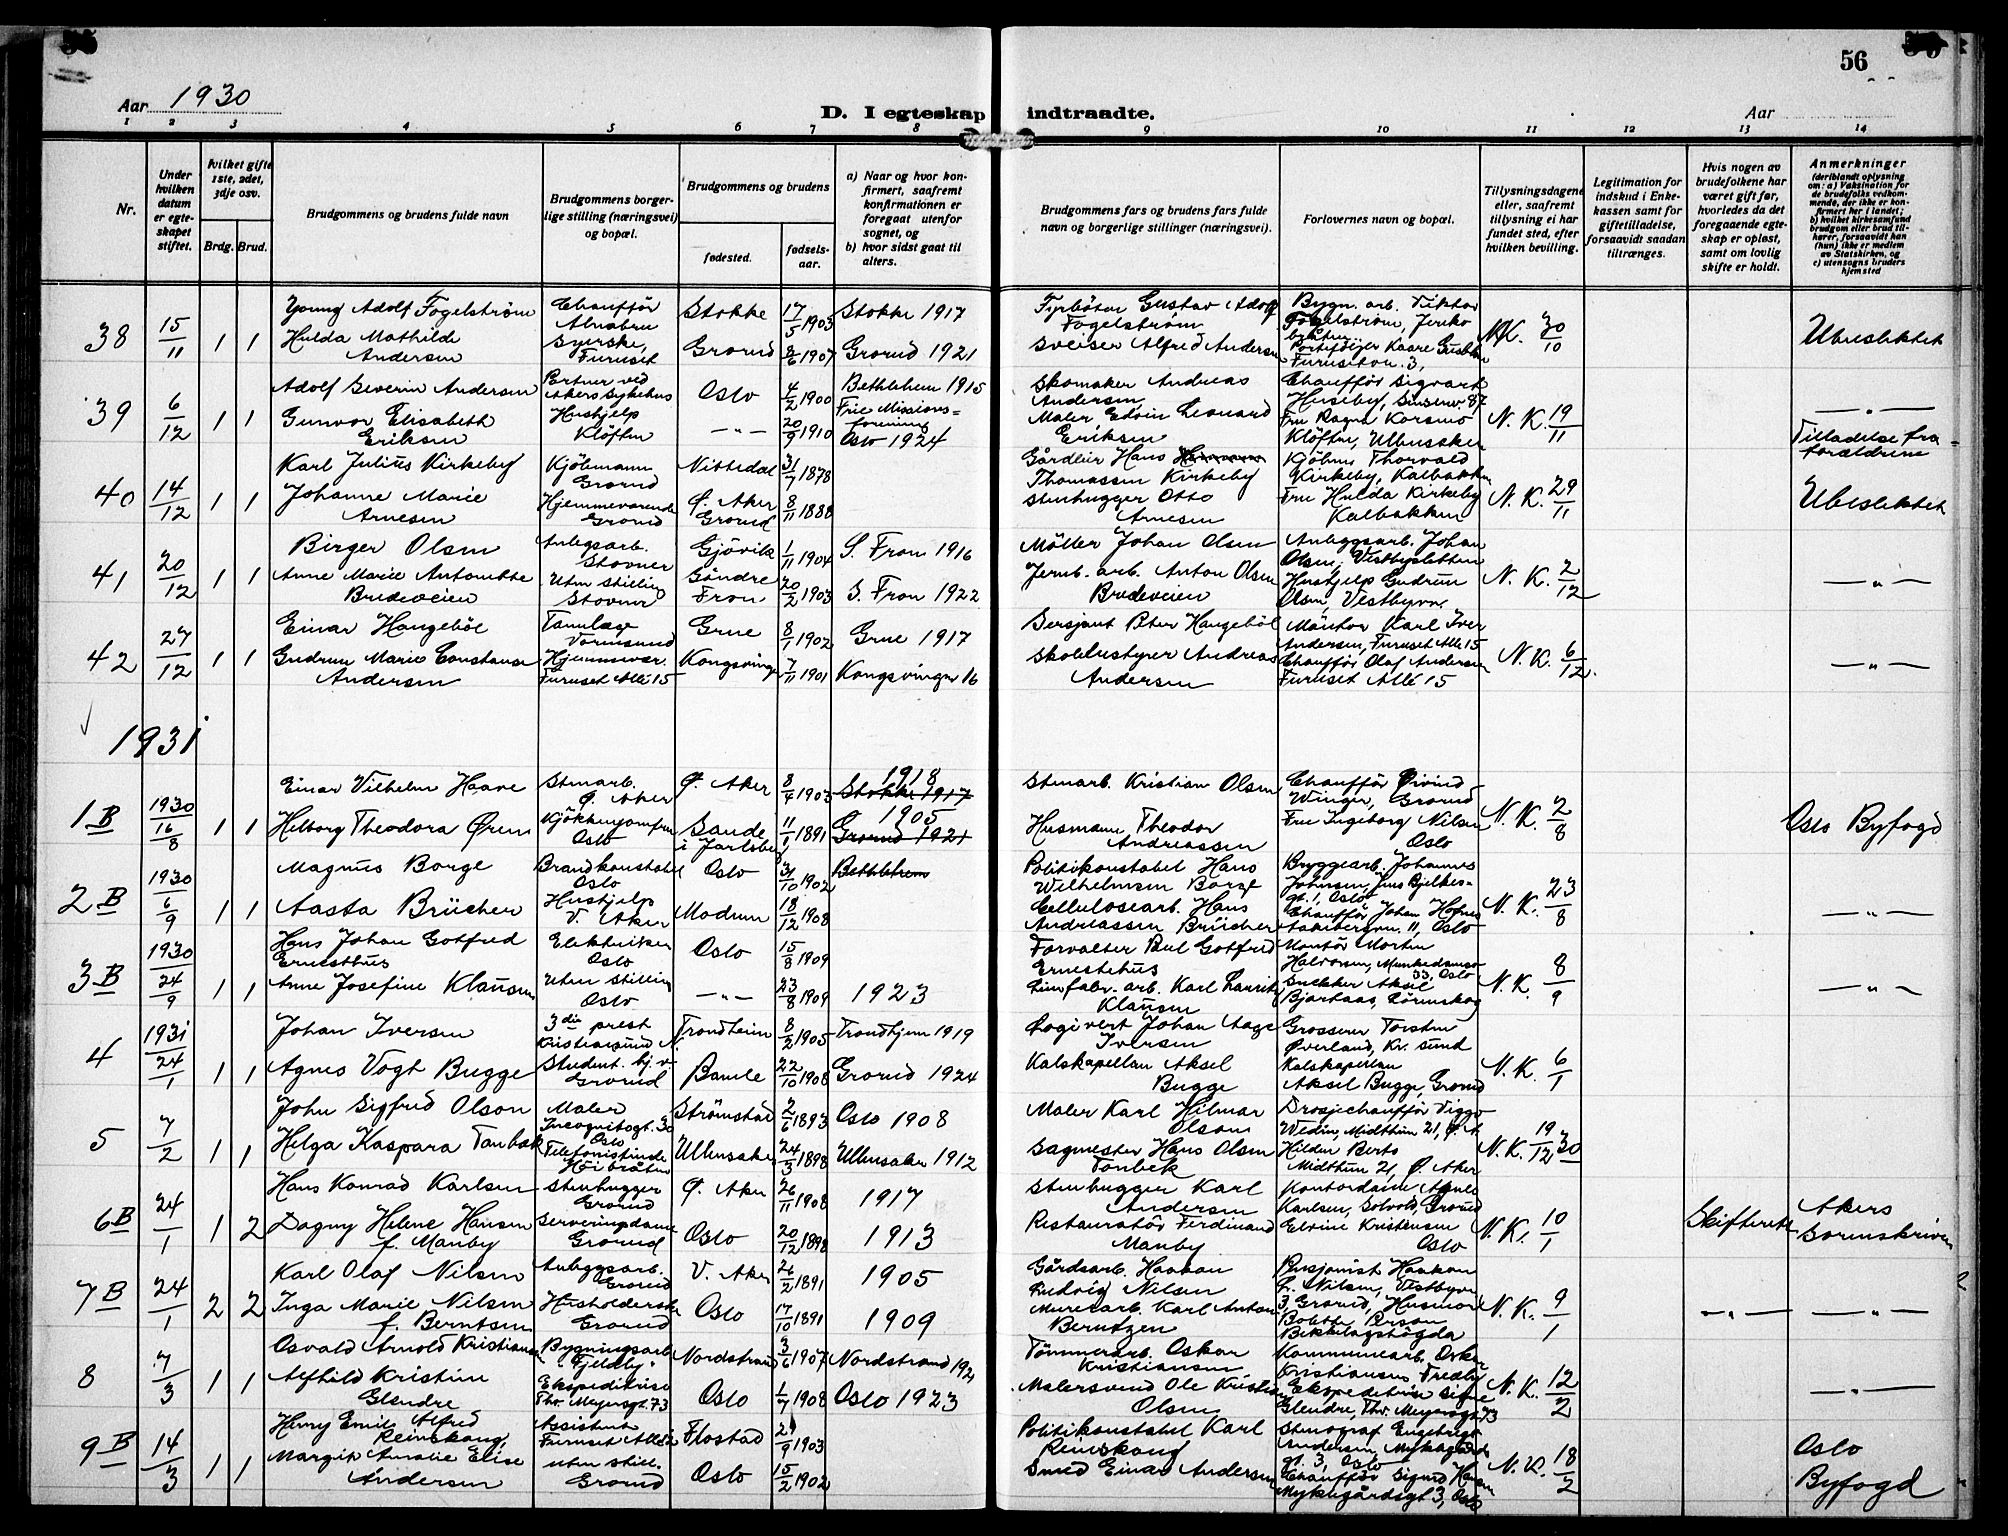 56
Aar 1930
D. I egteskap indtraadte.
Aar
1 2 3 4 5 6 7 8 9 10 11 12 13 14
Nr.
Under hvilken datum er egteskapet stiftet.
hvilket gifte 1ste, 2det, 3dje osv.
Brdg. Brud.
Brudgommens og brudens fulde navn
Brudgommens borgerlige stilling (næringsvei) og bopæl.
Brudgommens og brudens
fødested.
fødselsaar.
a) Naar og hvor konfirmert, saafremt konfirmationen er foregaat utenfor sognet, og
b) hvor sidst gaat til alters.
Brudgommens fars og brudens fars fulde navn og borgerlige stillinger (næringsvei).
Forlovernes navn og bopæl.
Tillysningsdagene eller, saafremt tillysning ei har fundet sted, efter hvilken bevilling.
Legitimation for indskud i Enkekassen samt for giftetilladelse, forsaavidt saadan tiltrænges.
Hvis nogen av brudefolkene har været gift før, hvorledes da det foregaaende egteskap er opløst, samt om lovlig skifte er holdt.
Anmerkninger
(deriblandt oplysning om: a) Vaksination for de brudefolks vedkommende, der ikke er konfirmert her i landet; b) hvilket kirkesamfund brudgom eller brud tilhører, forsaavidt han (hun) ikke er medlem av Statskirken, og c) utensogns bruders hjemsted
38 15/11 1 1
Young Adolf Fogelstrøm Chauffør Alnabru Stokke 17/5 1903 Stokke 1917
Hulda Mathilde Andersen Syerske, Furuset Grorud 8/6 1907 Grorud 1921
Fyrbøter Gustav Adolf Fogelstrøm
Sveiser Alfred Andersen
Bygn. arb. Viktor Fogelstrøm, Jeriko
Furusetvn. 3,
N.K. 30/10
Ubeslektet
39 6/12 1 1
Adolf Severin Andersen Portner ved Akers sykehus Oslo 4/2 1900 Bethlehem 1915
Gunvor Elisabeth Eriksen Hushjelp Kløften —"— 20/9 1910 Frie Missionsforening Oslo 1924
Skomaker Andreas Andersen
Maler Edvin Leonard Eriksen
Chauffør Sigvart Huseby, Sinsenv. 87
Fru Ragna Korsmo Kløften, Ullensaker
N.K. 19/11
—"—
Tilladelse fra forældrene
40 14/12 1 1
Karl Julius Kirkeby Kjøbmann Grorud Nittedal 31/7 1878
Johanne Marie Arnesen Hjemmeværende Grorud Ø. Aker Grorud 8/11 1888
Gårdeier Hans Thomassen Kirkeby
Stenhugger Otto Arnesen
Kjøbm. Thorvald Kirkeby, Kalbakken
Fru Hulda Kirkeby Kalbakken
N.K. 29/11
Ubeslektet
41 20/12 1 1
Birger Olsen Anlegsarb. Stovner Gjøvik 1/11 1904 S. Fron 1916
Anne Marie Antonette Brudeveien Uten stilling Stovner Søndre Fron 20/2 1903 S. Fron 1922
Møller Johan Olsen
Jernb. arb. Anton Olsen Brudeveien
Anleggsarb. Johan Olsen, Vestbysletten
Hushjelp Gudrun Olsen, Vestbyvn.
N.K. 2/12
—"—
42 27/12 1 1
Einar Haugebøl Tannlæge Vormsund Grue 8/1 1902 Grue 1917
Gudrun Marie Constanse Andersen Hjemmevær. Furuset Allé 15 Kongsvinger 7/11 1901 Kongsvinger 16
Sersjant Peter Haugebøl
Skolebestyrer Andreas Andersen
Montør Karl Iver Andersen, Furuset Allé 15
Chauffør Olaf Andersen Furuset Allé 15
N.K. 6/12.
—"—
1931
1B 1930 16/8 1 1
Einar Vilhelm Haave Stenarb. Ø. Aker Ø. Aker 8/4 1903 1918 Stokke 1917
Helborg Theodora Ørem Kjøkkenjomfru Oslo Sande i Jarlsberg 11/1 1891 1905 Grorud 1921
Stenarb. Kristian Olsen
Husmann Theodor Andreassen
Chauffør Øivind Winger, Grorud
Fru Ingeborg Nilsen Oslo
N.K. 2/8
Oslo Byfogd
2B 1930 6/9 1 1
Magnus Borge Brandkonstabel Oslo Oslo 31/10 1902 Bethlehem
Aasta Brücher Hushjelp V. Aker Modum 18/12 1908
Politikonstabel Hans Wilhelmsen Borge
Cellulosearb. Hans Andreassen Brücher
Bryggearb. Johannes Johnsen, Jens Bjelkesgt. 1, Oslo
Chauffør Johan
11, Oslo
N.K. 23/8
—"—
3B 1930 24/9 1 1
Hans Johan Gotfred Ernesthus Elektriker Oslo Oslo 15/8 1909
Anne Josefine Klausen Uten stilling Oslo —"— 23/8 1909 1923
Forvalter Paul Gotfred Ernestehus
Limfabr. arb. Karl Lauritz Klausen
Montør Morten Halvorsen, Munkedamsv. 33, Oslo
Snekker Aksel Bjørhaas, Lørenskog
N.K. 8/9
—"—
4 1931 24/1 1 1
Johan Iversen 3die prest Kristiansund N. Trondheim 8/2 1905 Trondhjem 1919
Agnes Vogt Bugge Student. hj.v. Grorud Bamle 22/10 1908 Grorud 1924
Fogivert Johan Aage Iversen
Kalskapellan Aksel Bugge
Grosserer Torsten Øverland, Kr. sund
Kalskapellan Aksel Bugge, Grorud
N.K. 6/1
5 7/2 1 1
John Sigfred Olson Maler Incognitogt. 30 Oslo Strømstad 2/6 1893 Oslo 1908
Helga Kaspara Tonbek Telefonistinde Høibråten Ullensaker 24/3 1898 Ullensaker 1912
Maler Karl Hilmar Olson
Sagmester Hans Olsen Tonbek
Drosjechauffør Viggo Wedin, Midthun 21, Ø. A.
Hilden Berts Midthun 21, Ø. Aker
N.K. 19/12 30
6B 24/1 1 2
Hans Konrad Karlsen Stenhugger Grorud Ø. Aker 26/11 1908 1917
Dagny Helene Hansen f. Manby Serveringsdame Grorud Oslo 20/12 1898 1913
Stenhugger Karl Andersen
Restauratør Ferdinand Manby
Kontordame Agnes Karlsen, Solvold, Grorud
Elvine Kristensen Oslo
N.K. 10/1
Skifterett
Akers Sorenskriver
7B 24/1 2 2
Karl Olaf Nilsen Anleggsarb. Grorud V. Aker 26/2 1891 1905
Inga Marie Nilsen f. Berntsen Husholderske Grorud Oslo 17/10 1891 1909
Gårdsarb. Haakon Ludvig Nilsen
Murerarb. Karl Anton Berntzen
Pensjonist Haakon L. Nilsen, Vestbyvn. 3, Grorud, Husmor Bolette Person Bekkelagshøgda
N.K. 9/1
—"— —"—
8 7/3 1 1
Osvald Arnold Kristiansen Bygningsarb. "Fjeldby" Nordstrand 3/6 1907 Nordstrand 1921
Alfhild Kristine Glendre Ekspeditrise Thv. Meyersgt. 73 Oslo 1/7 1908 Oslo 1923
Tømmerarb. Oskar Kristiansen
Malersvend Ole Kristian Olsen
Kommunearb. Oskar Kristiansen, Fredly
Ekspeditrise Signe Glendre, Thv. Meyersgt. 73
N.K. 12/2
—"—
9B 14/3 1 1
Henry Emil Alfred Reinskaug Assistent Furuset Allé 2 Flostad 2/9 1903
Margit Amalie Elise Andersen uten still. Grorud Oslo 15/2 1902
Politikonstabel Karl Reinskaug
Smed Einar Andersen
Stenograf Engebregt Andersen, Myklegårdsgt. 3, Oslo
Chauffør Sigurd Hansen Myklegårdsgt 3, Oslo
N.K. 18/2
Oslo Byfogd